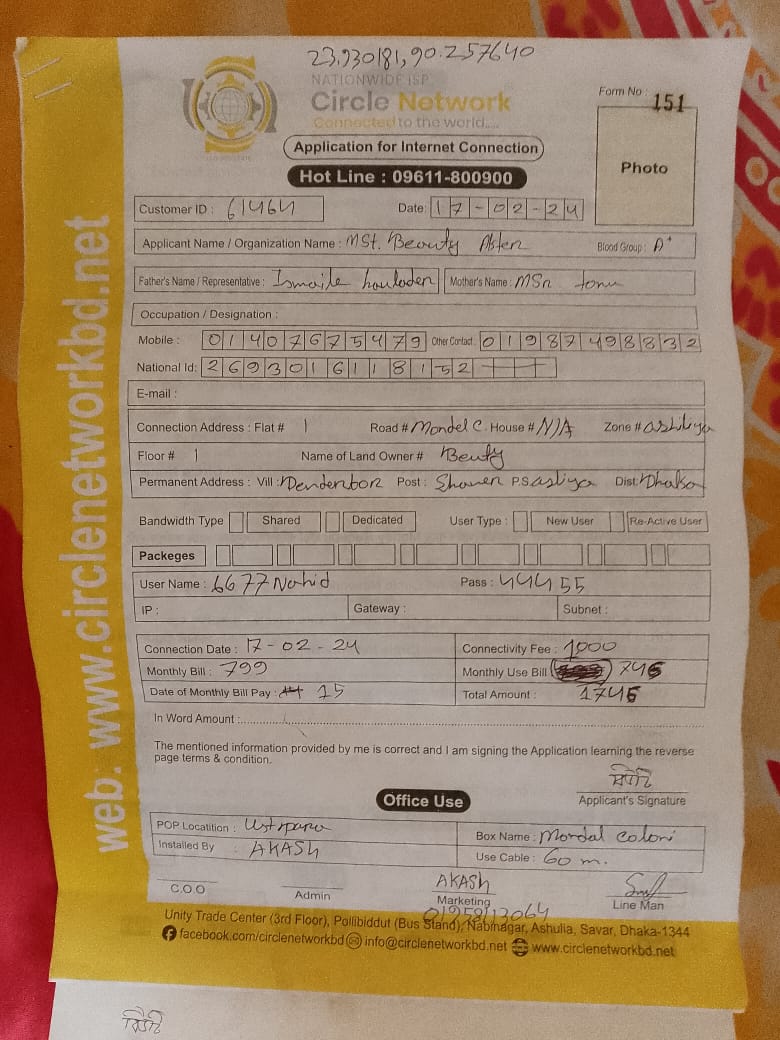 23.930181, 90.257640
NATIONWIDE ISP
Circle Network
Connected to the world.....
Form No : 151
Photo
Application for Internet Connection
Hot Line : 09611-800900
Customer ID : 61464
Date: 17-02-24
Applicant Name / Organization Name : MSt. Beauty Akter Blood Group : A+
Father's Name / Representative : Ismaile howlader Mother's Name : MSn tonu
Occupation / Designation :
Mobile : 01407675479 Other Contact : 01987498832
National Id: 2693016118152
E-mail :
Connection Address : Flat # 1 Road # Mondel C. House # N/A Zone # ashiliya
Floor # 1 Name of Land Owner # Beuty
Permanent Address : Vill : Dendenbor Post : P.S asliya Dist: Dhaka
Bandwidth Type Shared Dedicated User Type : New User Re-Active User
Packeges
User Name : 6677Nahid Pass : 444 55
IP : Gateway : Subnet :
Connection Date : 17-02-24 Connectivity Fee : 1000
Monthly Bill : 799 Monthly Use Bill 746
Date of Monthly Bill Pay : 15 Total Amount : 1746
In Word Amount :
The mentioned information provided by me is correct and I am signing the Application learning the reverse
page terms & condition.
বিউটি
Applicant's Signature
Office Use
POP Locatition : Box Name : Mondal Coloni
Installed By : AKASH Use Cable : 60 m.
AKASH
COO Admin Marketing Line Man
01958113064
Unity Trade Center (3rd Floor), Pollibiddut (Bus Stand), Nabinagar, Ashulia, Savar, Dhaka-1344
facebook.com/circlenetworkbd info@circlenetworkbd.net www.circlenetworkbd.net
web: www.circlenetworkbd.net
বিউটি